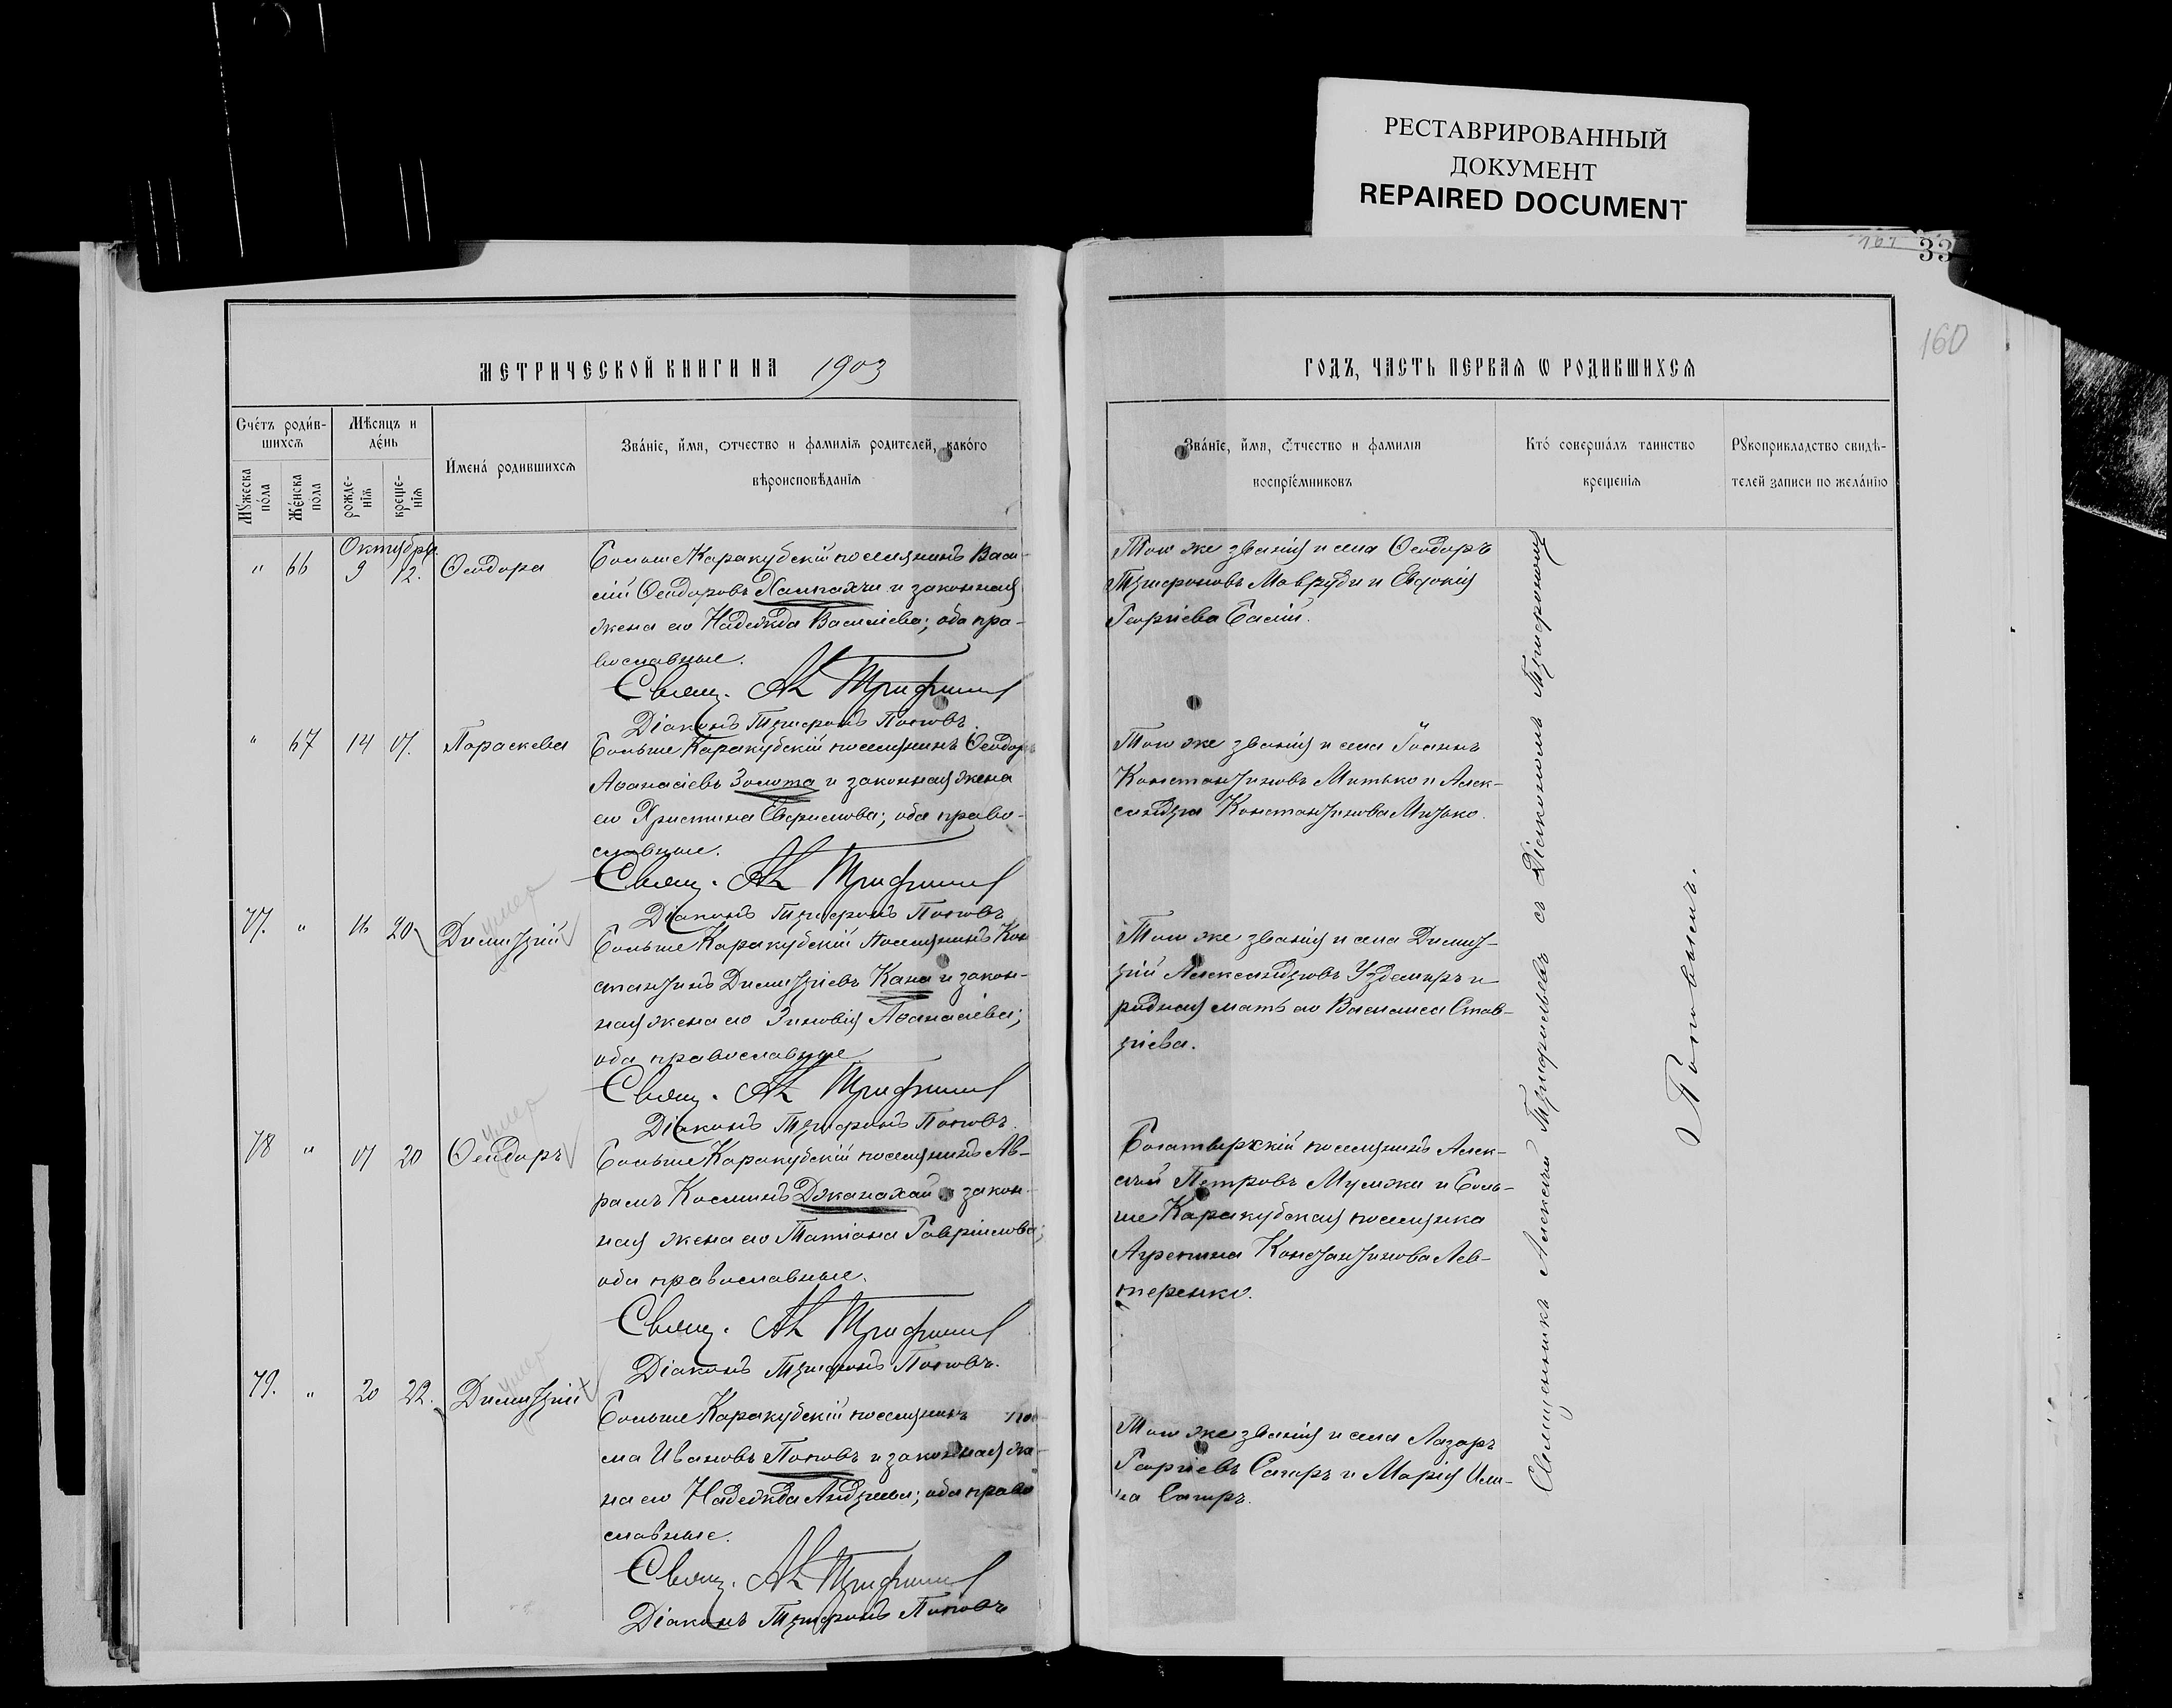 РЕСТАВРИРОВАННЫЙ
ДОКУМЕНТ
REPAIRED DOCUMENT
33
160
МЕТРИЧЕСКОЙ КНИГИ НА 1903
ГОДЪ, ЧАСТЬ ПЕРВАЯ Ѡ РОДИВШИХСЯ
Счéтъ роди́в-
шихсѧ
Мѣсяцъ и
дéнь
Мꙋ́жеска
пóла
Жéнска
пóла
рожде-
нїѧ
креще-
нїѧ
И́мена́ родившихсѧ
Звáнїе, и́мя, ѻтчество и фамилїѧ родителей, какóго
вѣроисповѣ́данїѧ
Звáнїе, и́мя, ѻтчество и фамилїя
воспрїéмниковъ
Ктó совершáлъ таинство
крещенїѧ
Рꙋкоприкладство свидѣ-
телей записи по желáнїю
Октября
" 66 9 12. Ѳеодора
Больше Каракубскій поселянинъ Васи-
лій Ѳеодоровъ Халпахчи и законная
жена его Надежда Василіева; оба пра-
вославные.
Свящ. Ал Трифиліев
Діаконъ Трифонъ Поповъ.
Того же званія и села Ѳеодоръ
Трифоновъ Мавруди и Евдокія
Георгіева Басій.
" 67 14 17. Параскева
Больше Каракубскій поселянинъ Ѳеодоръ
Аѳанасіевъ Золота и законная жена
его Христина Евфимова; оба право-
славные.
Свящ. Ал Трифиліев
Діаконъ Трифонъ Поповъ
Того же званія и села Іоаннъ
Константиновъ Митько и Алек-
сандра Константинова Митько.
77. " 16 20 Димитрій
умер
Больше Каракубскій поселянинъ Кон
стантинъ Димитріевъ Кана и закон-
ная жена его Зиновія Аѳанасіева;
оба православные
Свящ. Ал Трифиліев
Діаконъ Трифонъ Поповъ.
Того же званія и села Димит-
рій Александровъ Уздемиръ и
родная мать его Василиса Став-
ріева.
78 " 17 20 Ѳеодоръ
умер
Больше Каракубскій поселянинъ Ав-
рамъ Косминъ Джанахай и закон-
ная жена его Татіана Гавріилова;
оба православные.
Свящ. Ал Трифиліев
Діаконъ Трифонъ Поповъ.
Богатырскій поселянинъ Алек-
сѣй Петровъ Мумжи и Боль-
ше Каракубская поселянка
Агрепина Константинова Лев-
теренко.
79. " 20 22. Димитрій
умер
Больше Каракубскій поселянинъ
ма Ивановъ Поповъ и законная же-
на его Надежда Андреева; оба право
славные.
Свящ. Ал Трифиліев
Діаконъ Трифонъ Поповъ
Того же званія и села Лазаръ
Георгіевъ Сагиръ и Марія Или-
на Сагиръ.
Священникъ Алексѣй Трифильевъ съ Діакономъ Трифономъ
Поповымъ.